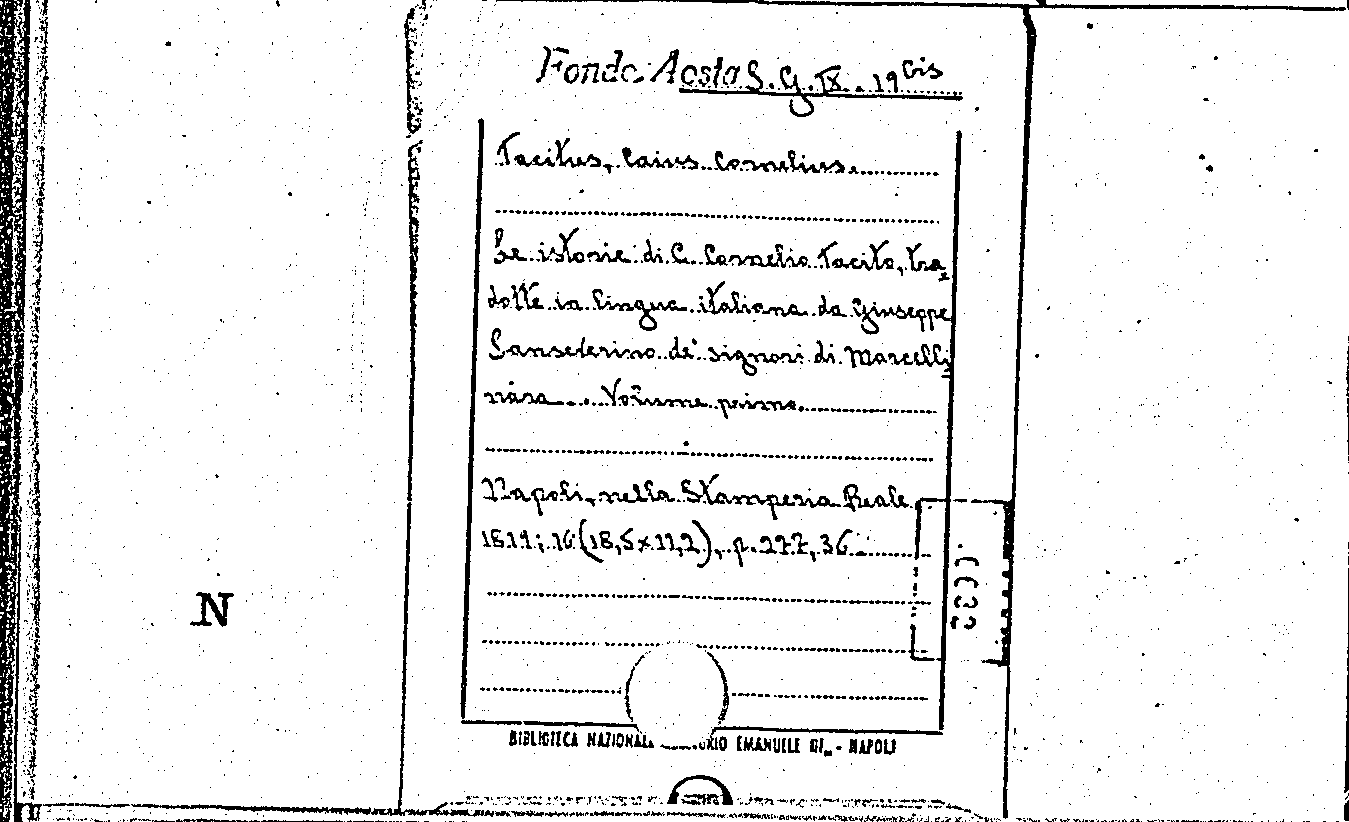 Fondo Aosta S. G. IX. 19 bis
Tacitus, Caius Cornelius.
Le istorie di C. Cornelio Tacito, tra=
dotte in lingua italiana da Giuseppe
Sanseverino de' signori di Marcelli=
nara... Volume primo.
Napoli, nella Stamperia Reale
16 (18,5x11,2), p. 36.
N
BIBLIOTECA NAZIONALE EMANUELE - NAPOLI